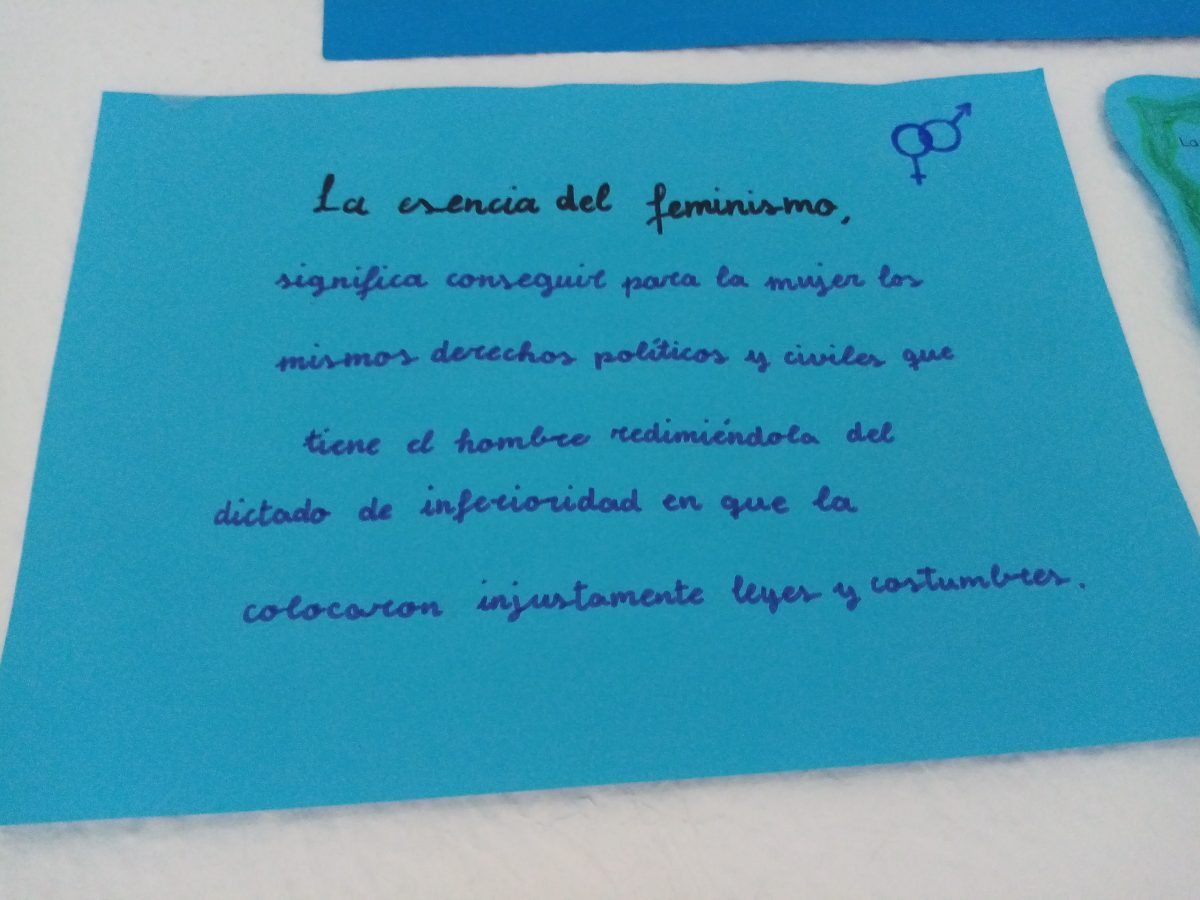 La esencia del feminismo,
significa conseguir para la mujer los
mismos derechos políticos y civiles que
tiene el hombre redimiéndola del
dictado de inferioridad en que la
colocaron injustamente leyes y costumbres.
La